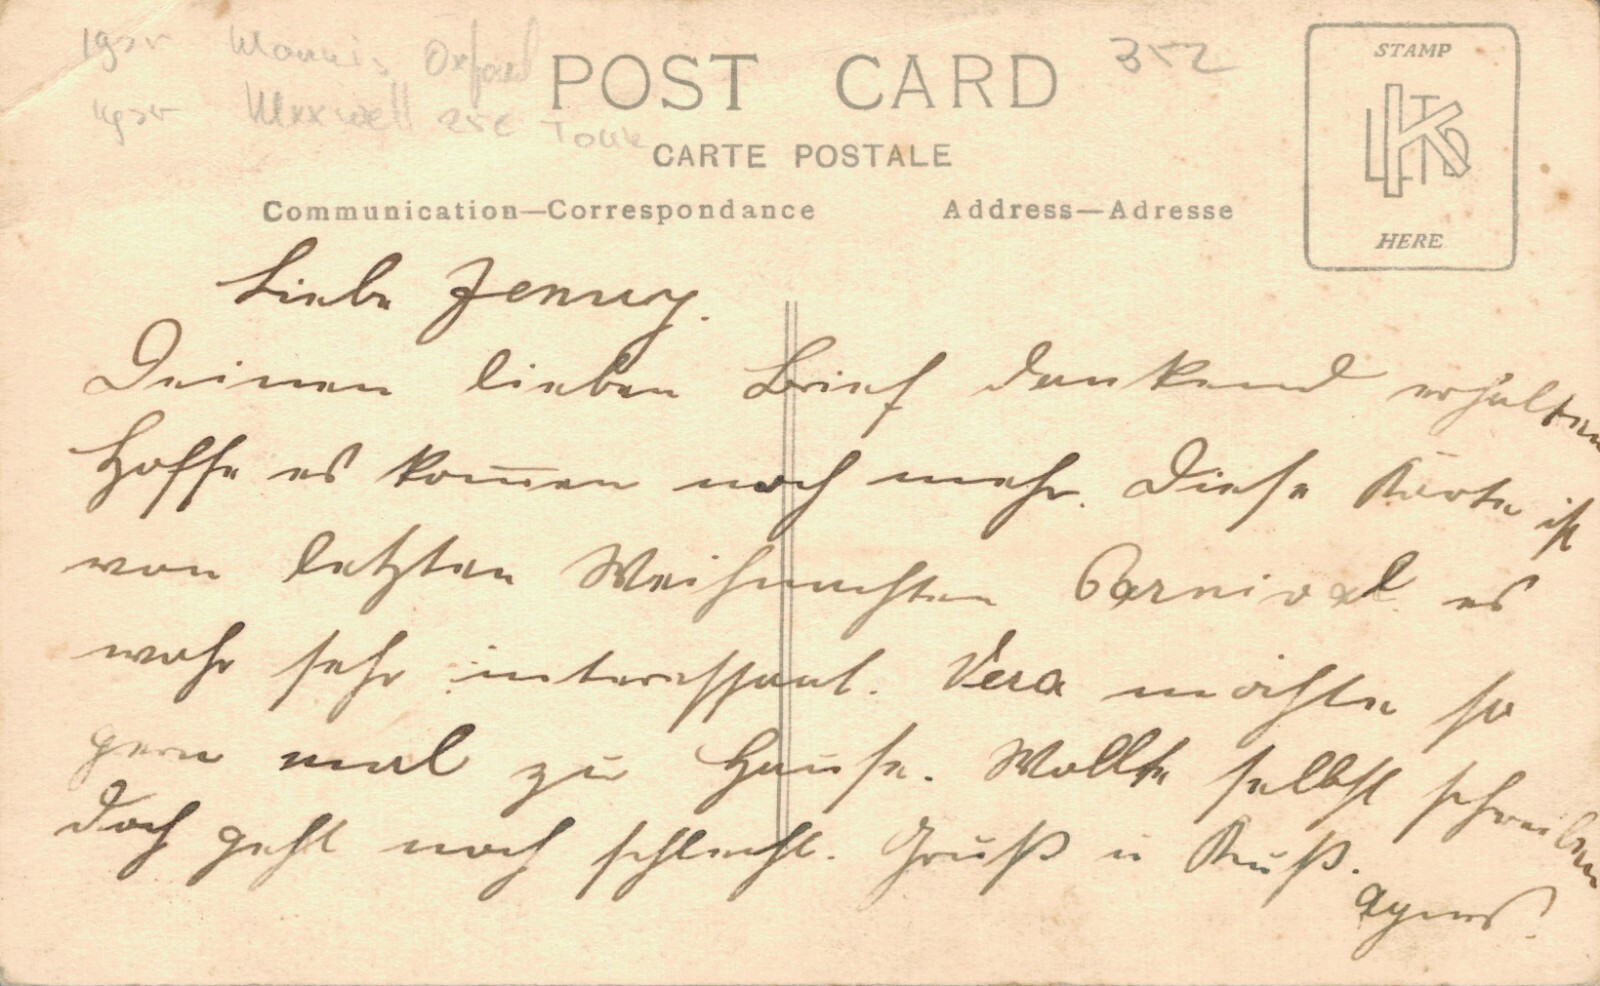 1925 Morris Oxford
1925 Maxwell 25C Tour
352
POST CARD
CARTE POSTALE
Communication—Correspondance
Address—Adresse
STAMP
HERE
Liebe Jenny.
Deinen lieben Brief dankend erhalten
Hoffe es kom̅en noch mehr. Diese Karte ist
von letzten Weihnachten Carnival es
wahr sehr interessant. Vera möchte so
gern mal zu Hause. Wollte selbst schreiben
doch geht noch schlecht. Gruß u Kuß.
Agnes.